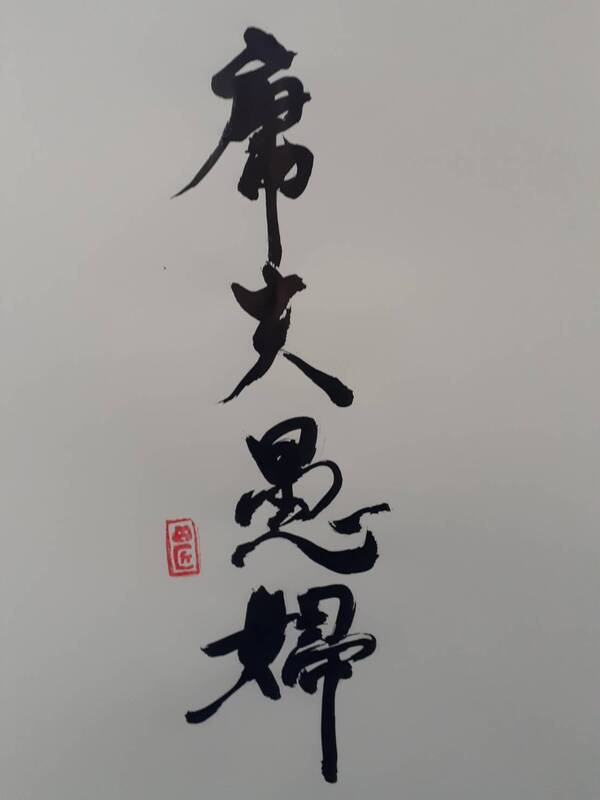 庸夫愚婦